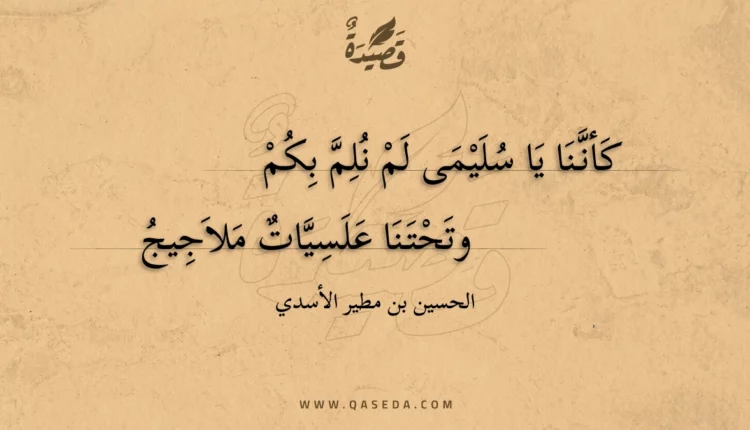 قَصِيْدَةٌ
كَأَنَّنَا يَا سُلَيْمَى لَمْ نُلِمَّ بِكُمْ
وتَحْتَنَا عَلَسِيَّاتٌ مَلاَجِيجُ
الحسين بن مطير الأسدي
WWW.QASEDA.COM